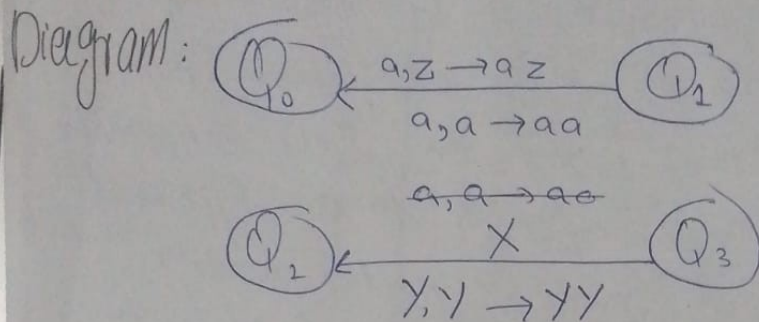 Diagram:
Q0 a,z→az Q1
a,a→aa
a,a→aa
X
Q2 Q3
y,y→yy